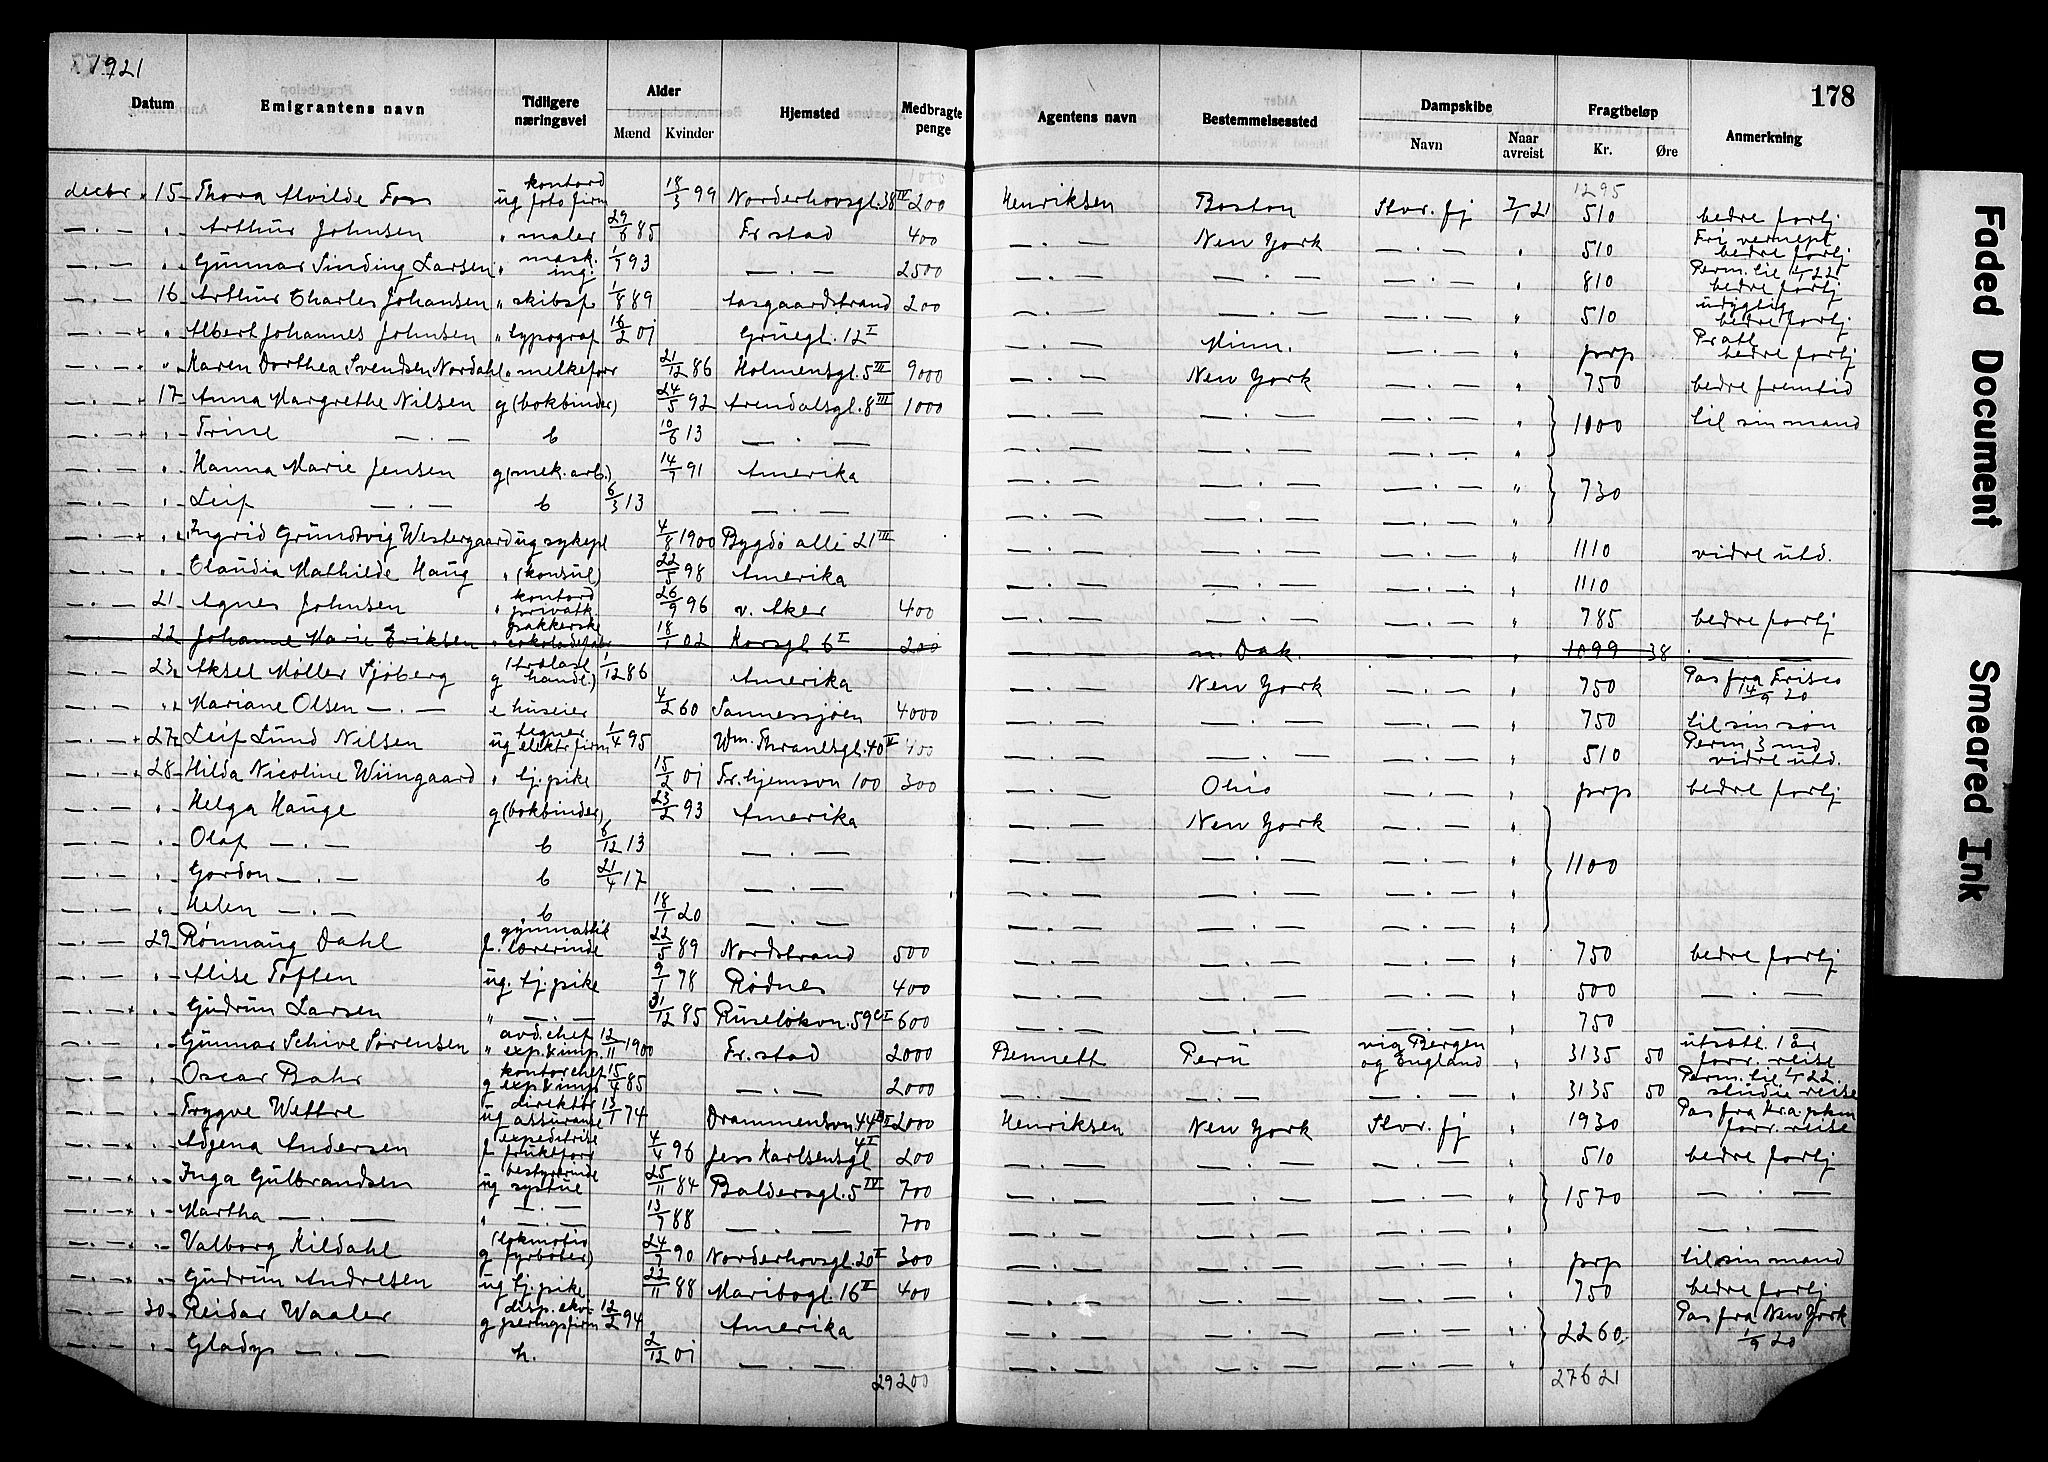 1921
178
Datum Emigrantens navn Tidligere næringsvei Alder Mænd Kvinder Hjemsted Medbragte penge Agentens navn Bestemmelsessted Dampskibe Navn Naar avreist Fragtbeløp Kr. Øre Anmerkning
1295
decbr 15 Thora Alvilde Foss ug kontord foto firm 18/3 99 Norderhovsgt. 38 IV 200 Henriksen Boston Stvr. fj 7/1 21 510 bedre fortj
— . — " Arthur Johnsen " maler 29/6 85 Fr.stad 400 — . — New York — . — " 510 Fri vernepl bedre fortj
— . — " Gunnar Sinding Larsen " mask. ing. 1/7 93 — . — 2500 — . — — . — — . — " 810 Perm. til 1/1 22 bedre fortj
— . — 16 Arthur Charles Johansen " skibsf 1/8 89 Aasgaardstrand 200 — . — — . — — . — " 510 udygtig bedre fortj
— . — " Albert Johannes Johnsen " typograf 16/2 01 Gruegt. 12 I — . — Minn. — . — " prp Pratt bedre fortj
— . — " Karen Dorthea Svendsen Nordahl " melkeforr 21/12 86 Holmensgt. 5 III 9000 — . — New York — . — " 750 bedre fremtid
— . — 17 Anna Margrethe Nilsen g (bokbinder) 24/5 92 Arendalsgt. 8 III 1000 — . — — . — — . — " 1000 til sin mand
— . — " Trine — . — b 10/6 13 — . — — . — — . — — . — "
— . — " Hanna Marie Jensen g (mek. arb.) 14/7 91 Amerika — . — — . — — . — " 730
— . — " Leif — . — b 6/3 13 — . — — . — — . — — . — "
— . — " Ingrid Grundtvig Westergaard ug sykepl 4/8 1900 Bygdø allé 21 III — . — — . — — . — " 1110 vidre utd.
— . — " Claudia Mathilde Haug " (konsul) 22/5 98 Amerika — . — — . — — . — " 1110
— . — 21 Agnes Johnsen " kontord privatk. 26/9 96 v. Aker 400 — . — — . — — . — " 785 bedre fortj
— . — 22 Johanne Marie Eriksen " pakkerske cokoladefabr 18/1 02 Korsgt 6 I 200 — . — n. Dak. — . — " 1099 38 — . —
— . — 23 Aksel Møller Sjøberg g (trælast handl.) 1/12 86 Amerika — . — New York — . — " 750 Pas fra Frisco 14/9 20
— . — " Mariane Olsen — . — e huseier 4/2 60 Sannessjøen 4000 — . — — . — — . — " 750 til sin søn
— . — 27 Leif Lund Nilsen ug tegner elektr firm 1/4 95 Wm. Thranesgt. 40 V 400 — . — — . — — . — " 510 Perm 3 md vidre utd.
— . — 28 Hilda Nicoline Wiingaard " tj. pike 15/2 01 Fr.hjemsvn 100 300 — . — Ohio — . — " prp bedre fortj
— . — " Helga Hauge g (bokbinder) 23/2 93 Amerika — . — New York — . — " 1100
— . — " Olaf — . — b 6/12 13 — . — — . — — . — — . — "
— . — " Gordon — . — b 21/4 17 — . — — . — — . — — . — "
— . — " Helen — . — b 18/1 20 — . — — . — — . — — . — "
— . — 29 Rønnaug Dahl f. gymnastik lærerinde 22/5 89 Nordstrand 500 — . — — . — — . — " 750 bedre fortj
— . — " Alise Toften ug. tj. pike 9/1 78 Rødnes 400 — . — — . — — . — " 500 — . —
— . — " Gudrun Larsen " — . — 31/12 85 Ruseløkvn. 59 c I 600 — . — — . — — . — " 750
— . — " Gunnar Schive Sørensen " avd. chef exp. & imp. 12/11 1900 Fr.stad 2000 Bennett Peru via Bergen og England " 3135 50 utsætt. 1 år forr. reise
— . — " Oscar Bahr g kontorchef exp & imp 15/4 85 — . — 2000 — . — — . — — . — " 3135 50 Perm. til 1/1 22 studiereise
— . — " Trygve Wettre ug direktør assurance 13/1 74 Drammensvn 44 B I 2000 Henriksen New York Stvr. fj " 1930 Pas fra Kra. pkm forr. reise
— . — " Adgena Andersen f expeditrise frukeforr 4/4 96 Jess Karlsensgt 4 I 200 — . — — . — — . — " 510 bedre fortj
— . — " Inga Gulbrandsen ug bestyrerinde systue 25/11 84 Baldersgt. 5 IV 700 — . — — . — — . — " 1570 — . —
— . — " Martha — . — " — . — 13/7 88 — . — 700 — . — — . — — . — "
— . — " Valborg Kildahl g (lokmotiv fyrbøter) 24/9 90 Norderhovsgt. 20 I 300 — . — — . — — . — " prp til sin mand
— . — " Gudrun Andresen ug tj. pike 22/11 88 Maribogt. 16 II 400 — . — — . — — . — " 750 bedre fortj
— . — 30 Reidar Waaler g disp. ekvi- peringsfirm 12/2 94 Amerika — . — — . — — . — " 2260 Pas fra New York 1/9 20
— . — " Gladys — . — h. 2/12 01 — . — — . — — . — — . — "
29200 27621
Faded Document
Smeared Ink